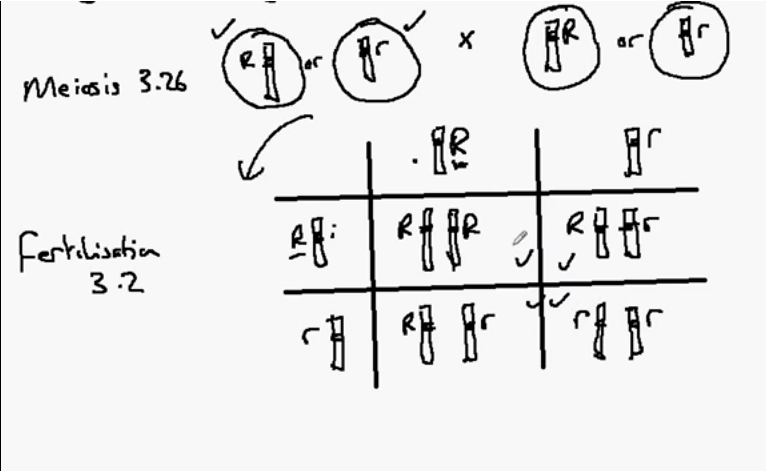 R or r x R or r
Meiosis 3.26
R r
R R R R r
Fertilisation
3.2
r R r r r